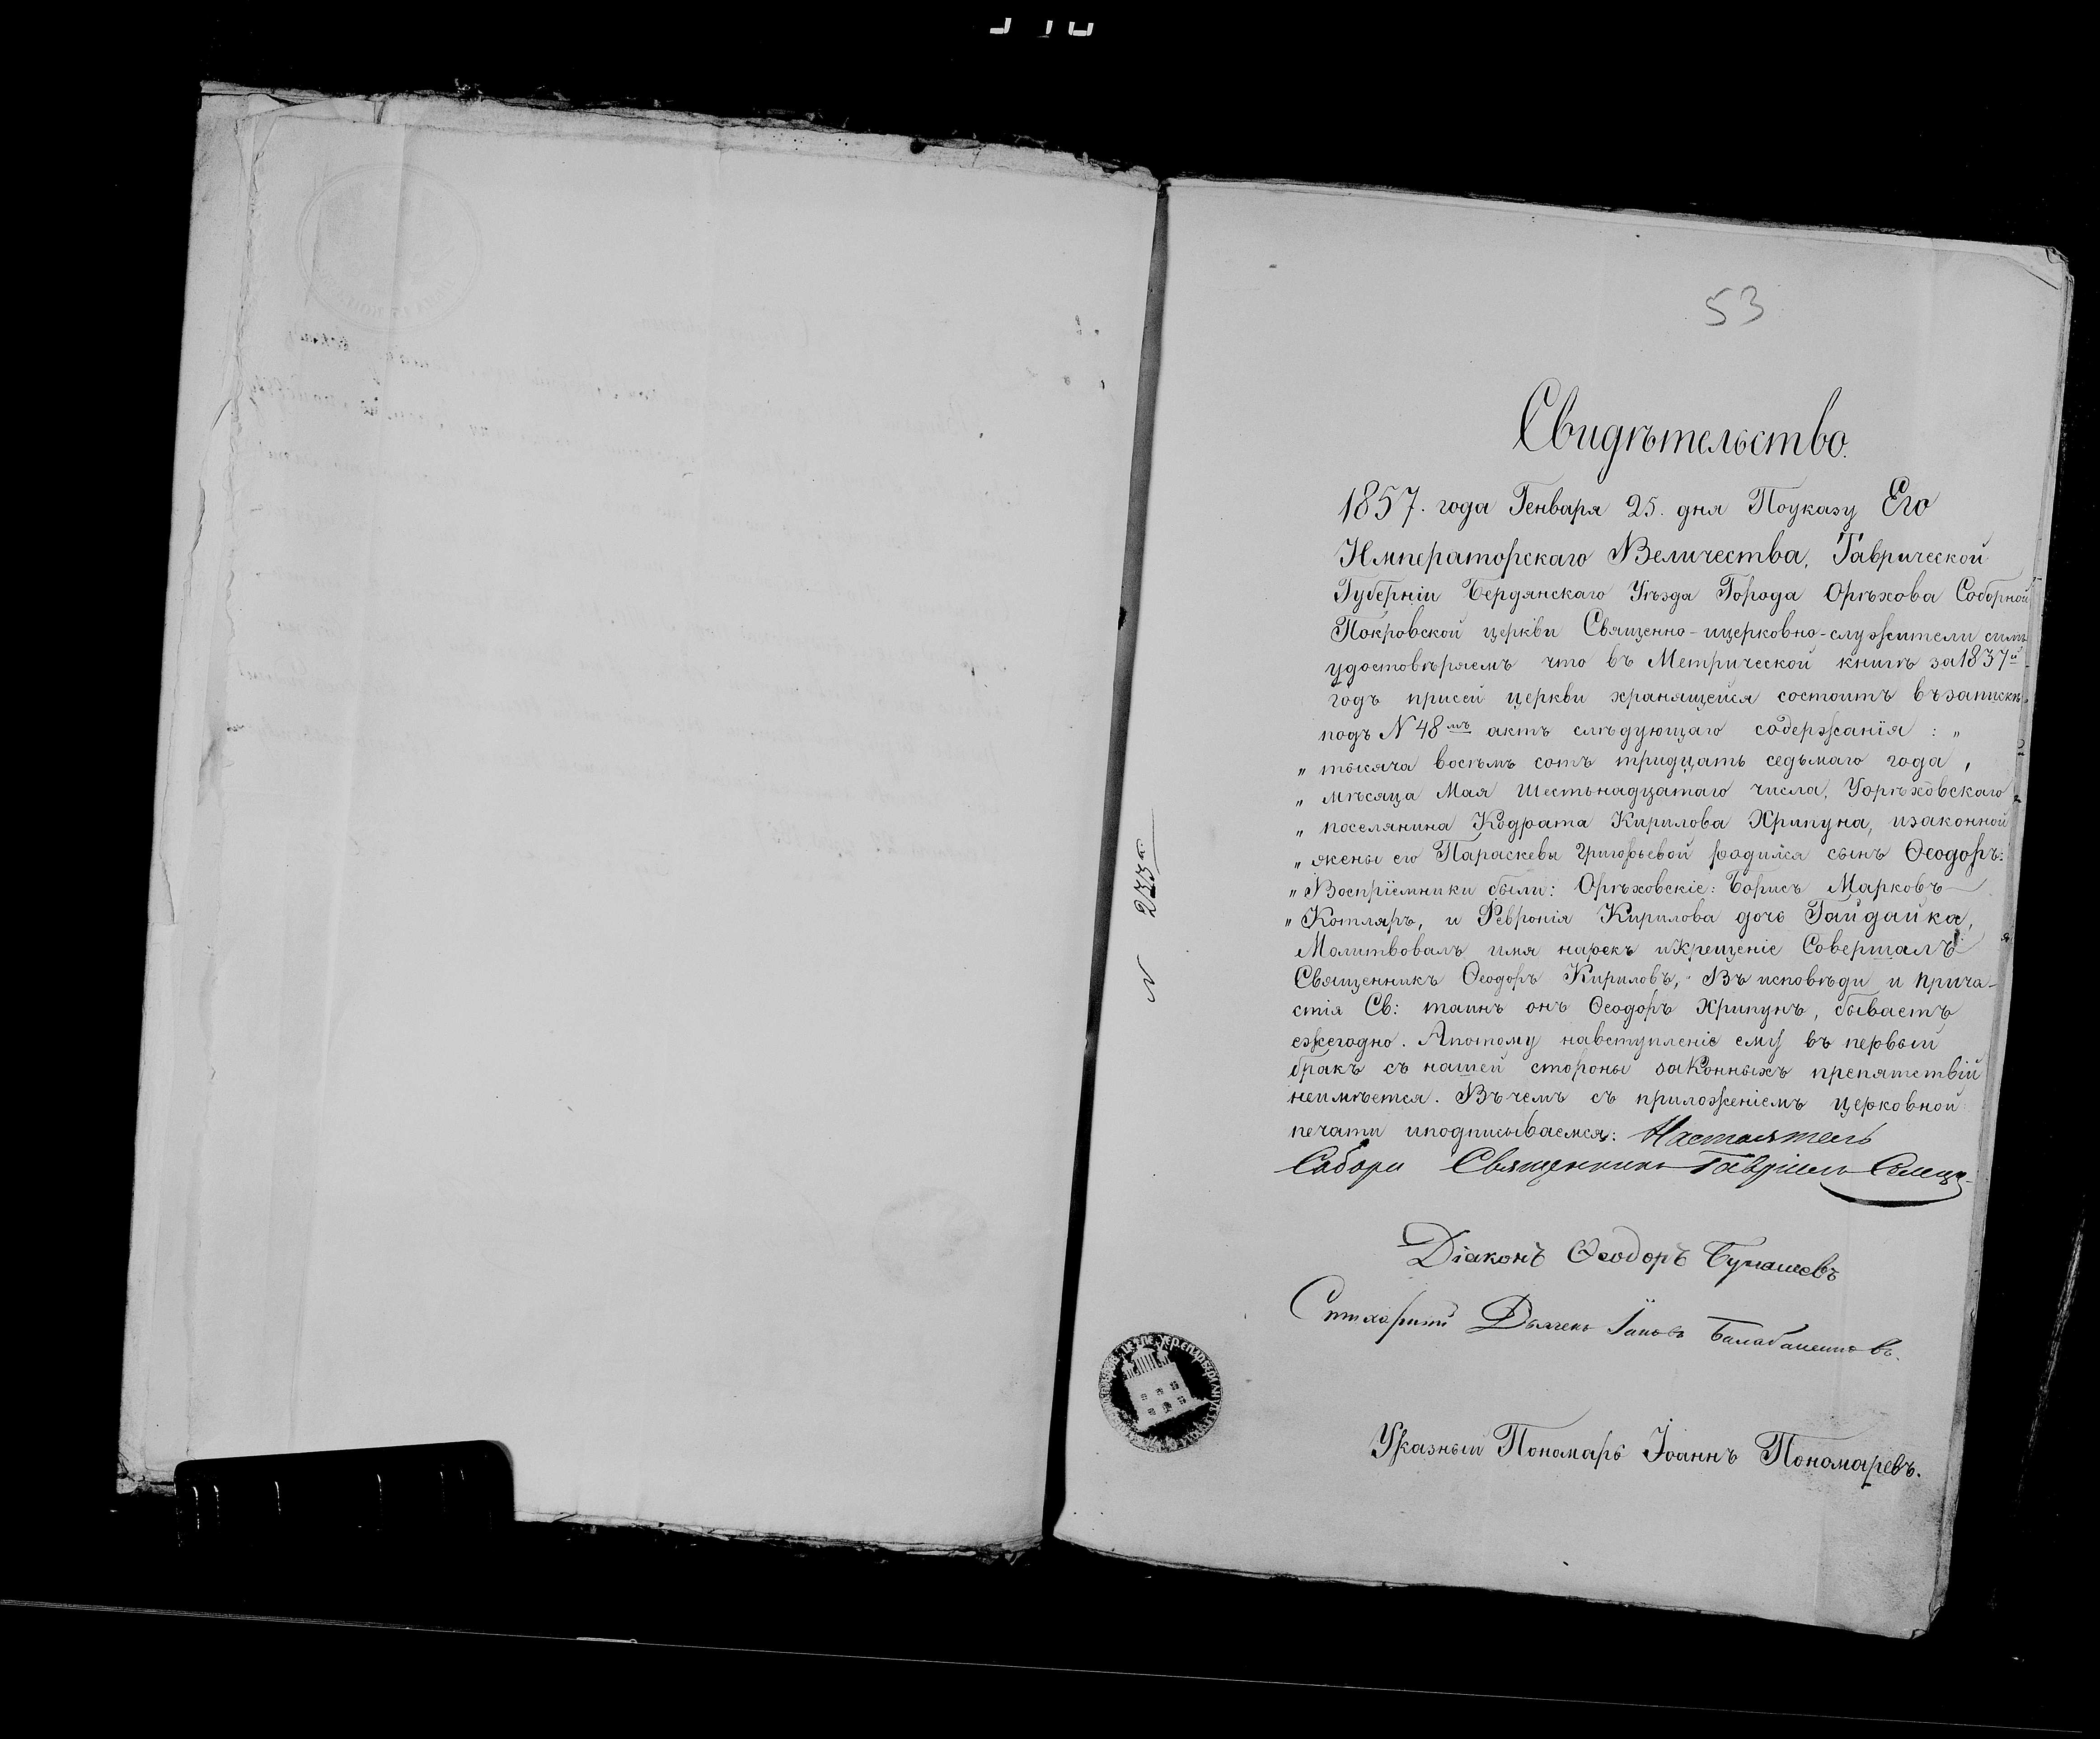 53
Свидѣтельство.
1857. года Генваря 25. дня Поуказу Его
Императорскаго Величества, Таврической
Губерніи Бердянскаго Уѣзда Города Орѣхова Соборной
Покровской церкви Священно-ицерковно-служители симъ
удостовѣряемъ что въ Метрической книгѣ за 1837й
годъ присей церкви хранящейся состоитъ възапискѣ
подъ N 48мъ актъ слѣдующаго содержанія : „
„ тысяча восѣмъ сотъ тридцать седьмаго года ,
„ мѣсяца Мая Шестьнадцатаго числа, Уорѣховскаго
„ поселянина Кодрата Кирилова Хрипуна, изаконной
„ жены его Параскевы Григорьевой родился сынъ Ѳеодоръ:
„ Воспріемники были: Орѣховскіе: Борисъ Марковъ
„ Котляръ, и Февронія Кирилова дочь Гайдайка,
Молитвовалъ имя нарекъ икрещеніе Совершалъ:
Священникъ Ѳеодоръ Кириловъ, Въ исповѣди и прича-
стія Св: таинъ онъ Ѳеодоръ Хрипунъ, бываетъ
ежегодно. Апотому навступленіе ему въ первый
бракъ съ нашей стороны законныхъ препятствій
неимѣется. Въчемъ съ приложеніемъ церковной
печати иподписываемся: Настоятель
Собора Священникъ Гавріилъ
Діаконъ Ѳеодоръ
Стихарный Іаковъ
Указный Пономарь Іоаннъ Пономаревъ.
N 233